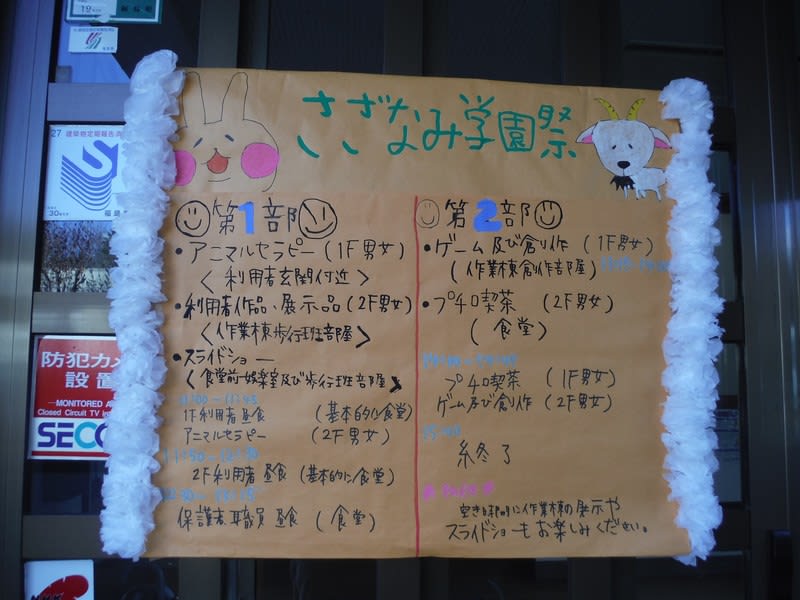 さざなみ学園祭
第1部
・アニマルセラピー(1F男女)
<利用者玄関付近>
・利用者作品、展示品(2F男女)
<作業棟歩行班部屋>
・スライドショー
<食堂前娯楽室及び歩行班部屋>
11:00〜11:45
1F利用者昼食 (基本的に食堂)
アニマルセラピー (2F男女)
2F利用者昼食(基本的に食堂)
保護者、職員 昼食 (食堂)
第2部
・ゲーム及び創作(1F男女)
(作業棟創作部屋)
・プチロ喫茶 (2F男女)
(食堂)
プチロ喫茶 (1F男女)
ゲーム及び創作(2F男女)
終了
空き時間に作業棟の展示や
スライドショーもお楽しみください。
27
防犯カメ
設置
MONITORED
Closed Circuit TV
SECO